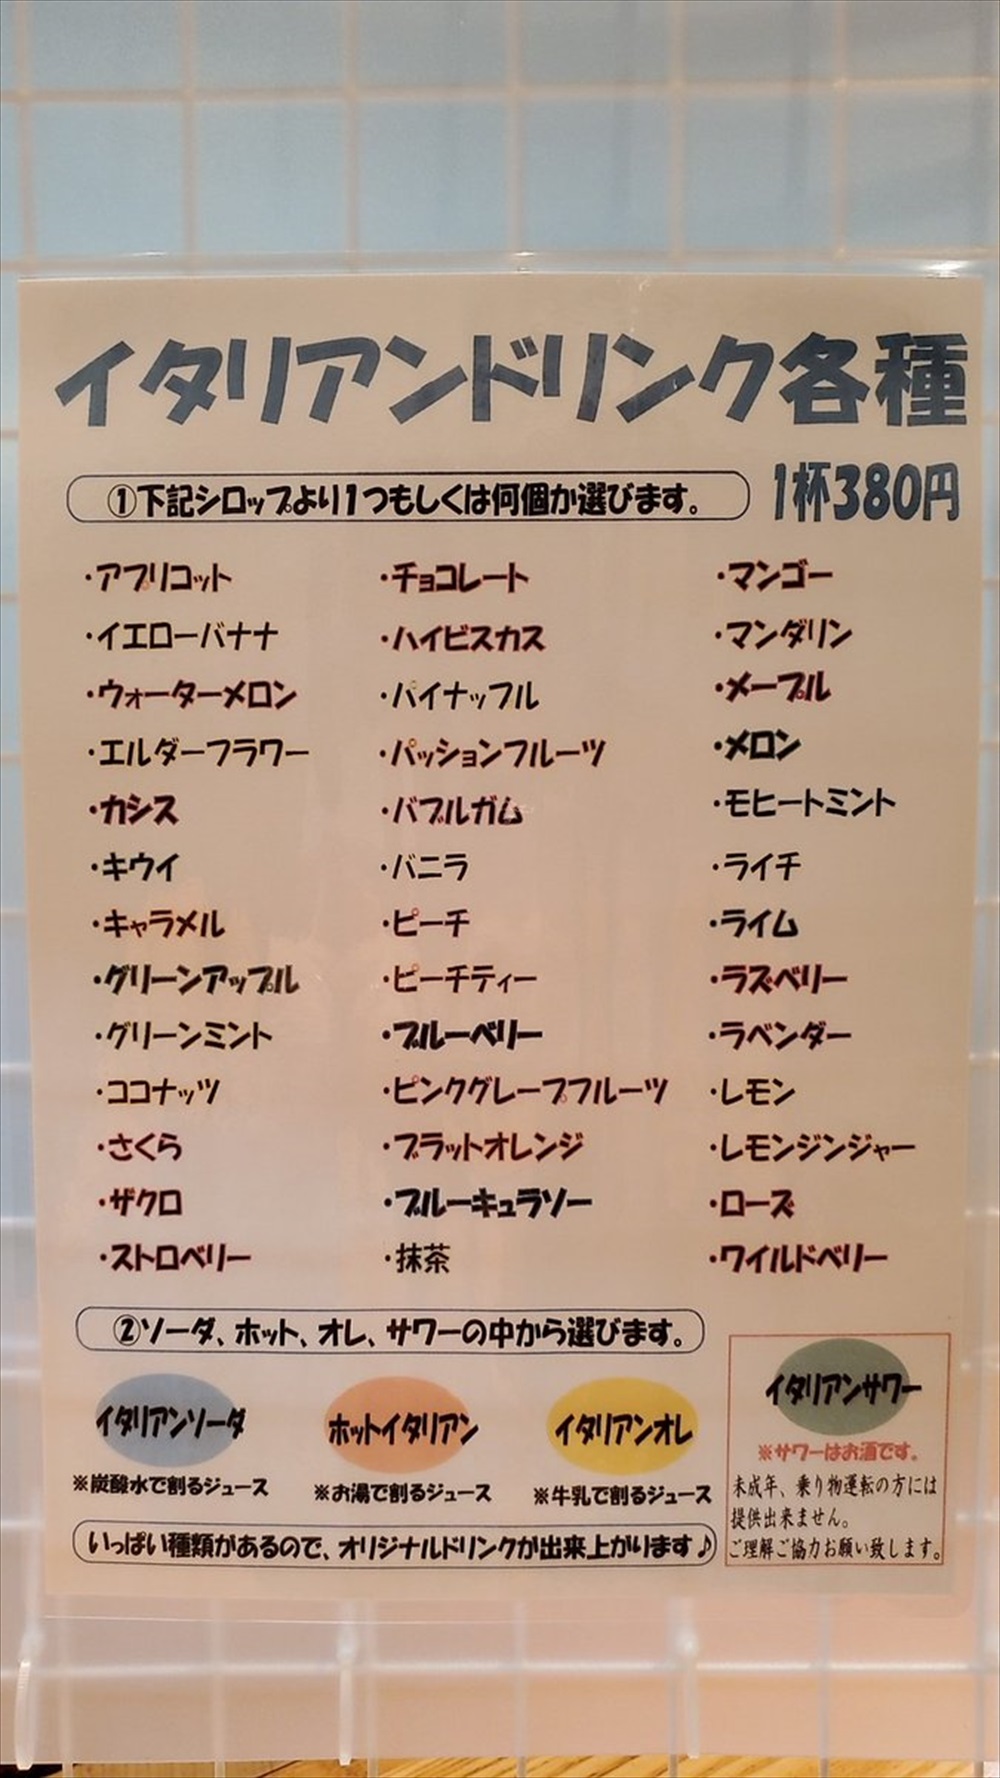 イタリアンドリンク各種
①下記シロップより1つもしくは何個か選びます。
1杯380円
・アプリコット
・イエローバナナ
・ウォーターメロン
・エルダーフラワー
・カシス
・キウイ
・キャラメル
・グリーンアップル
・グリーンミント
・ココナッツ
・さくら
・ザクロ
・ストロベリー
・チョコレート
・ハイビスカス
・パイナップル
・パッションフルーツ
・バブルガム
・バニラ
・ピーチ
・ピーチティー
・ブルーベリー
・ピンクグレープフルーツ
・ブラットオレンジ
・ブルーキュラソー
・抹茶
・マンゴー
・マンダリン
・メープル
・メロン
・モヒートミント
・ライチ
・ライム
・ラズベリー
・ラベンダー
・レモン
・レモンジンジャー
・ローズ
・ワイルドベリー
②ソーダ、ホット、オレ、サワーの中から選びます。
イタリアンソーダ
※炭酸水で割るジュース
ホットイタリアン
※お湯で割るジュース
イタリアンオレ
※牛乳で割るジュース
イタリアンサワー
※サワーはお酒です。
未成年、乗り物運転の方には
提供出来ません。
ご理解ご協力お願い致します。
いっぱい種類があるので、オリジナルドリンクが出来上がります♪